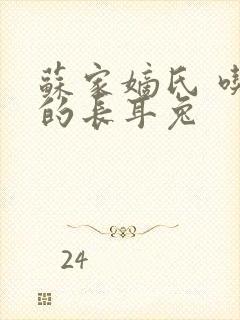 蘇家嫡氏
的長耳兔
24